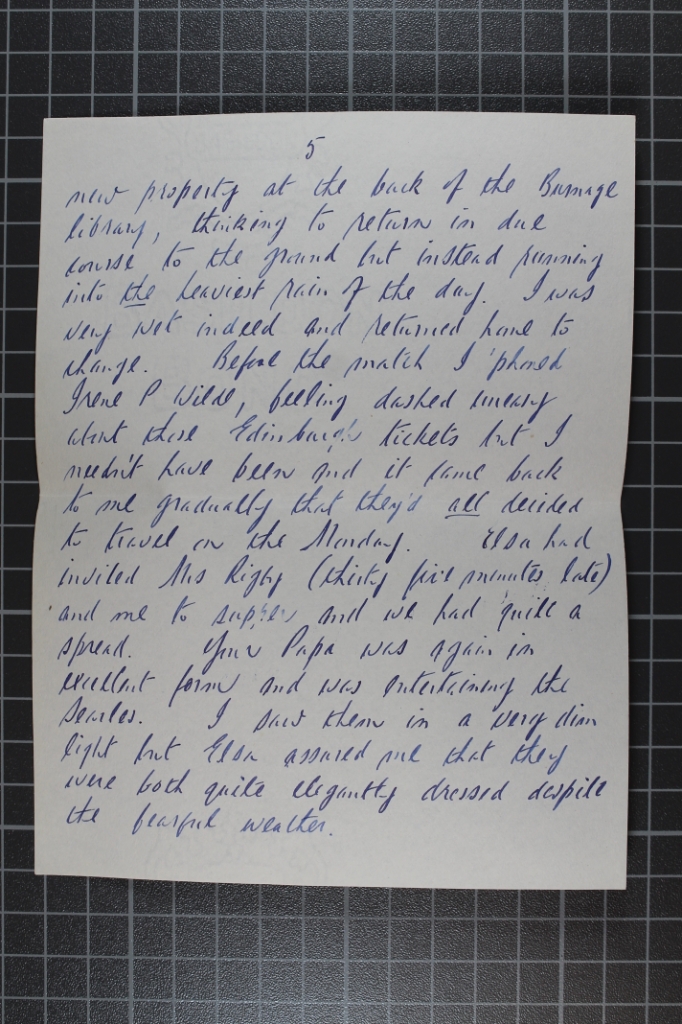 5
new property at the back of the Burnage
library, thinking to return in due
course to the ground but instead running
into the heaviest rain of the day. I was
very wet indeed and returned home to
change. Before the match I 'phoned
Irene P Wilde, feeling dashed uneasy
about those Edinburgh tickets but I
needn't have been and it came back
to me gradually that they'd all decided
to travel on the Monday. Elsa had
invited Mrs Rigby (thirty five minutes late)
and me to supper and we had quite a
spread. Your Papa was again in
excellent form and was entertaining the
Searles. I saw them in a very dim
light but Elsa assured me that they
were both quite elegantly dressed despite
the fearful weather.